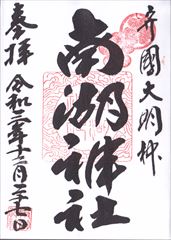 幸國大明神
南湖神社
奉拝
令和二年十二月二十七日